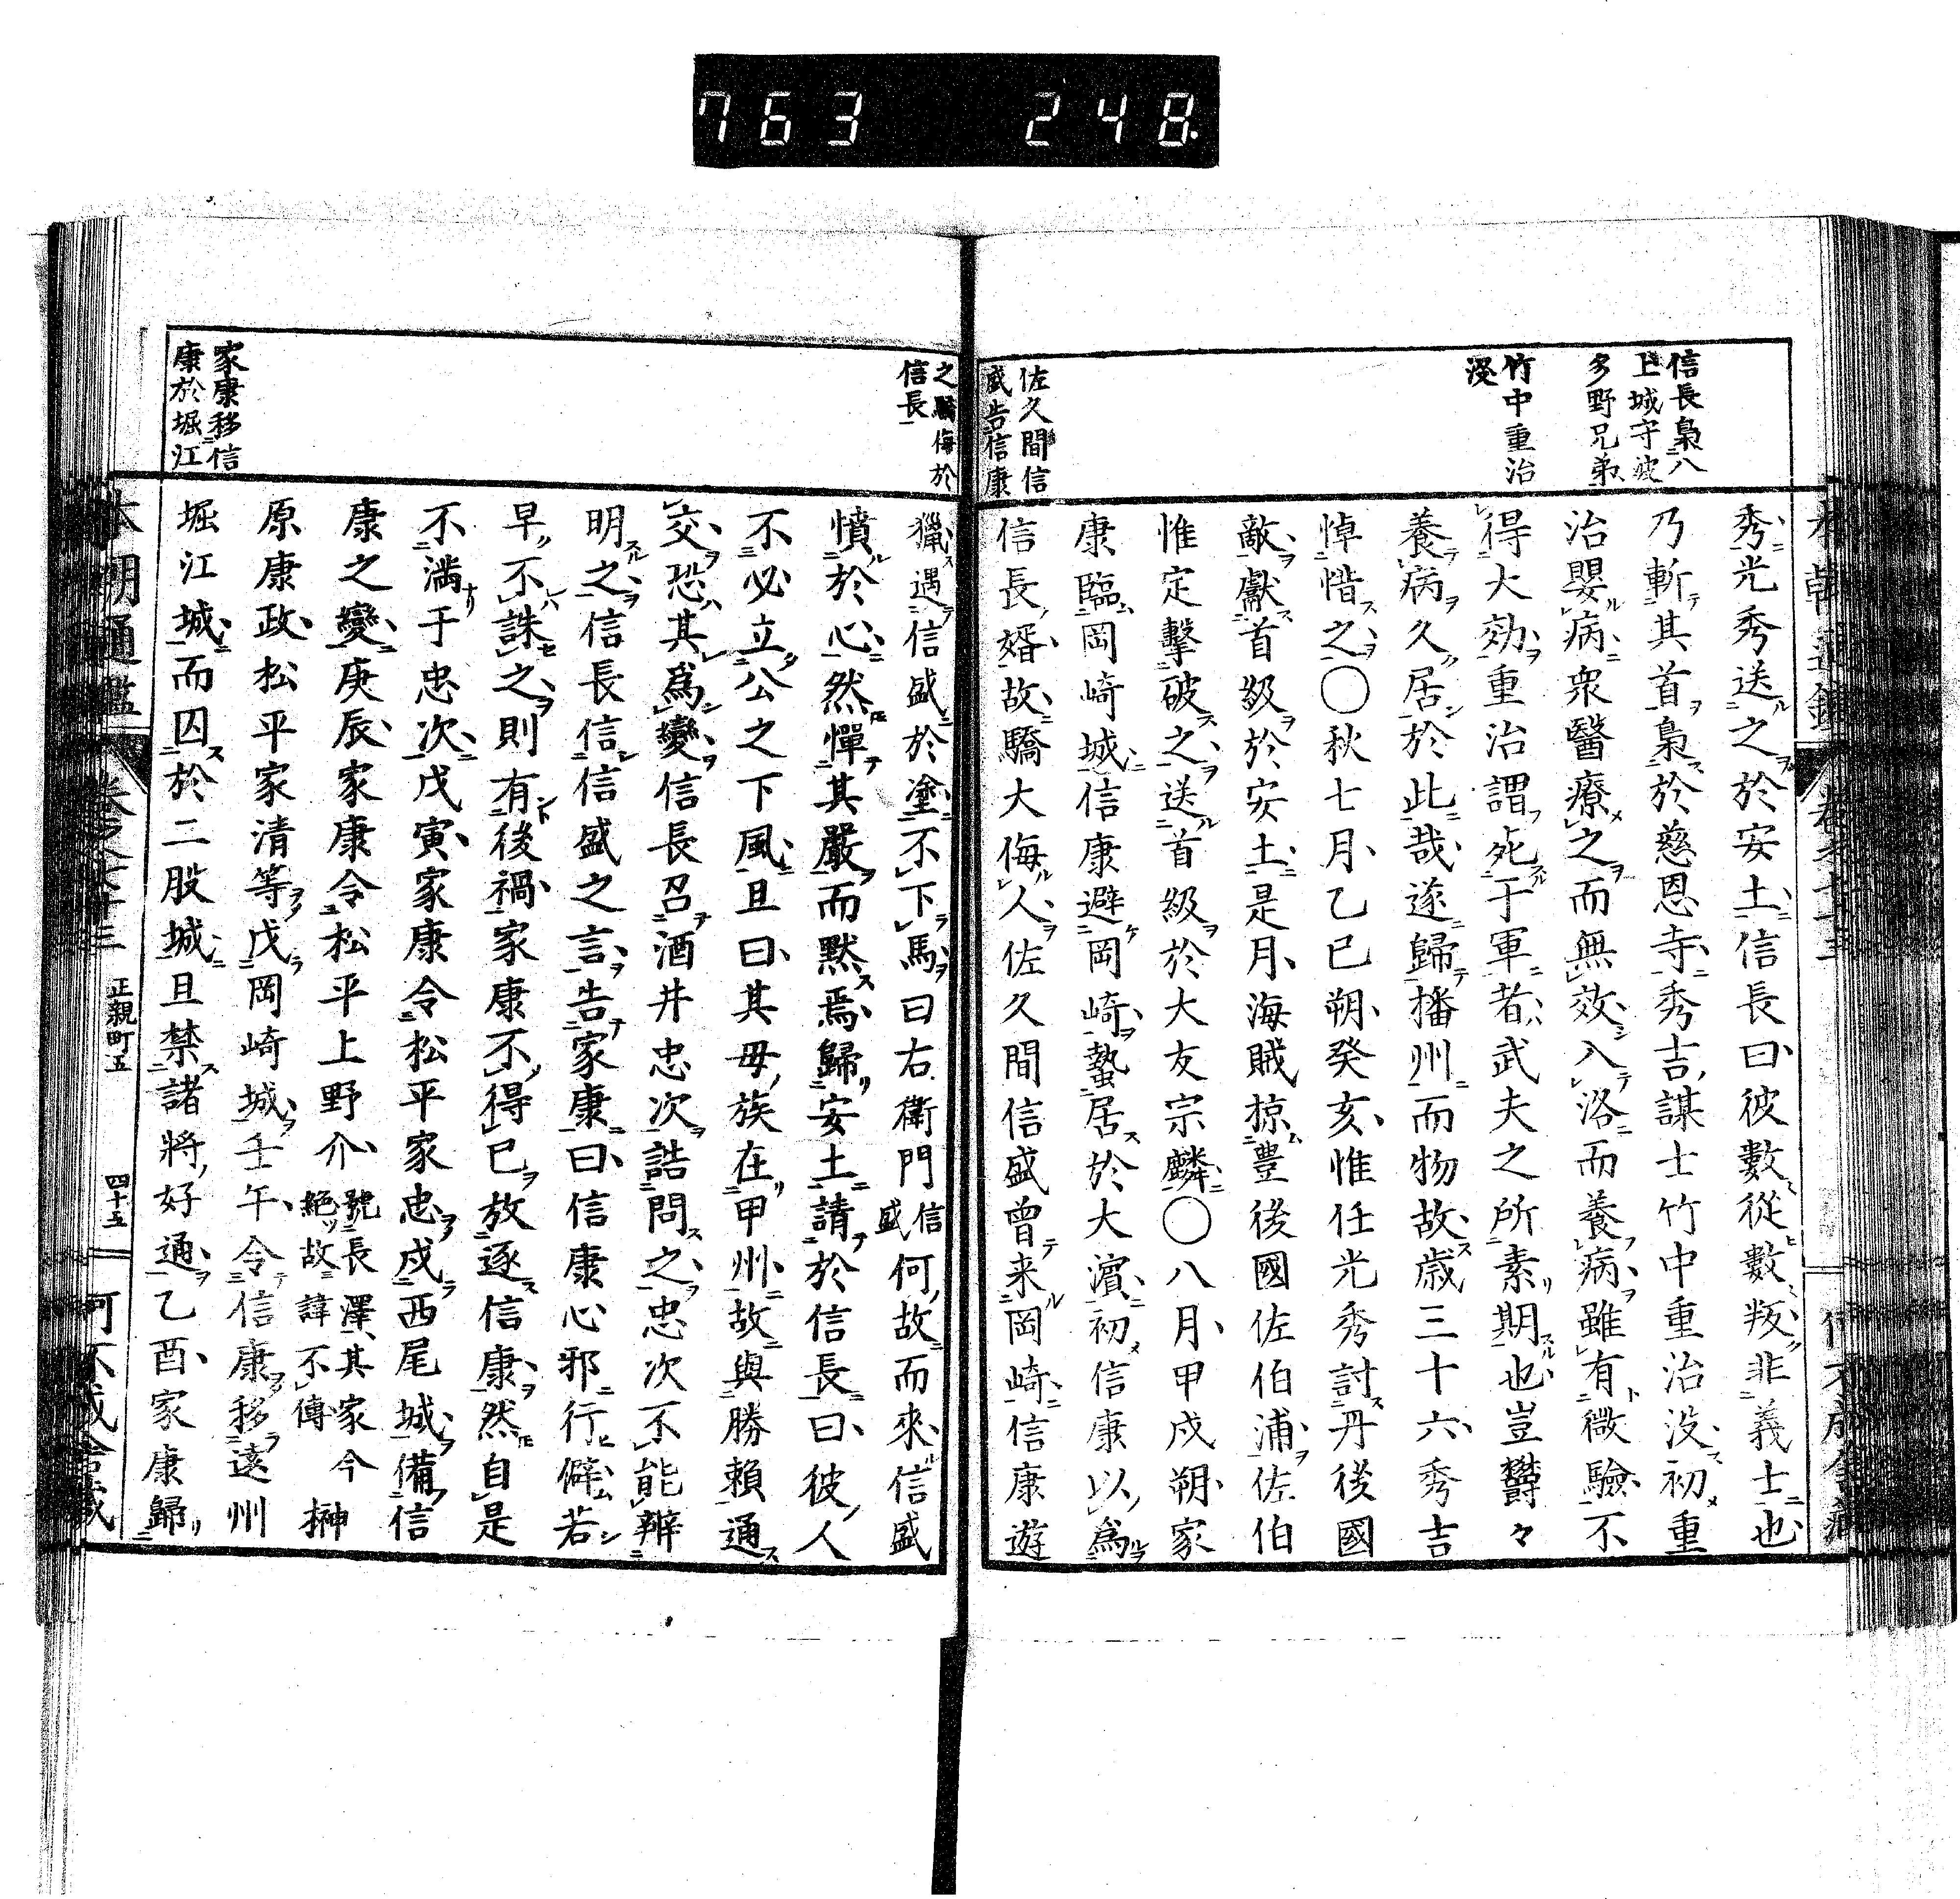 763 248
信長梟八
上城守波
多野兄弟
竹中重治
没
佐久間信
盛告信康
秀光秀送之於安土信長曰彼數從數叛非義士也
乃斬其首梟於慈恩寺秀吉謀士竹中重治没初重
治嬰病衆醫療之而無效入洛而養病雖有微驗不
得大効重治謂死于軍者武夫之所素期也豈欝々
養病久居於此哉遂歸播州而物故歳三十六秀吉
悼惜之〇秋七月乙巳朔癸亥惟任光秀討丹後國
敵獻首級於安土是月海賊掠豊後國佐伯浦佐伯
惟定擊破之送首級於大友宗麟〇八月甲戌朔家
康臨岡崎城信康避岡崎蟄居於大濵初信康以爲
信長婿故驕大侮人佐久間信盛曾来岡崎信康遊
之驕侮於
信長
家康移信
康於堀江
獵遇信盛於塗不下馬曰右衛門信盛何故而來信盛
憤於心然憚其嚴而默焉歸安土請於信長曰彼人
不必立公之下風且曰其母族在甲州故與勝賴通
交恐其爲變信長召酒井忠次詰問之忠次不能辨
明之信長信信盛之言告家康曰信康心邪行僻若
早不誅之則有後禍家康不得已放逐信康然自是
不満于忠次戊寅家康令松平家忠戍西尾城備信
康之變庚辰家康令松平上野介號長澤其家今絕故諱不傳榊
原康政松平家清等戍岡崎城壬午令信康移遠州
堀江城而囚於二股城且禁諸將好通乙酉家康歸
本朝通鑑 卷之七十三 正親町五 四十五